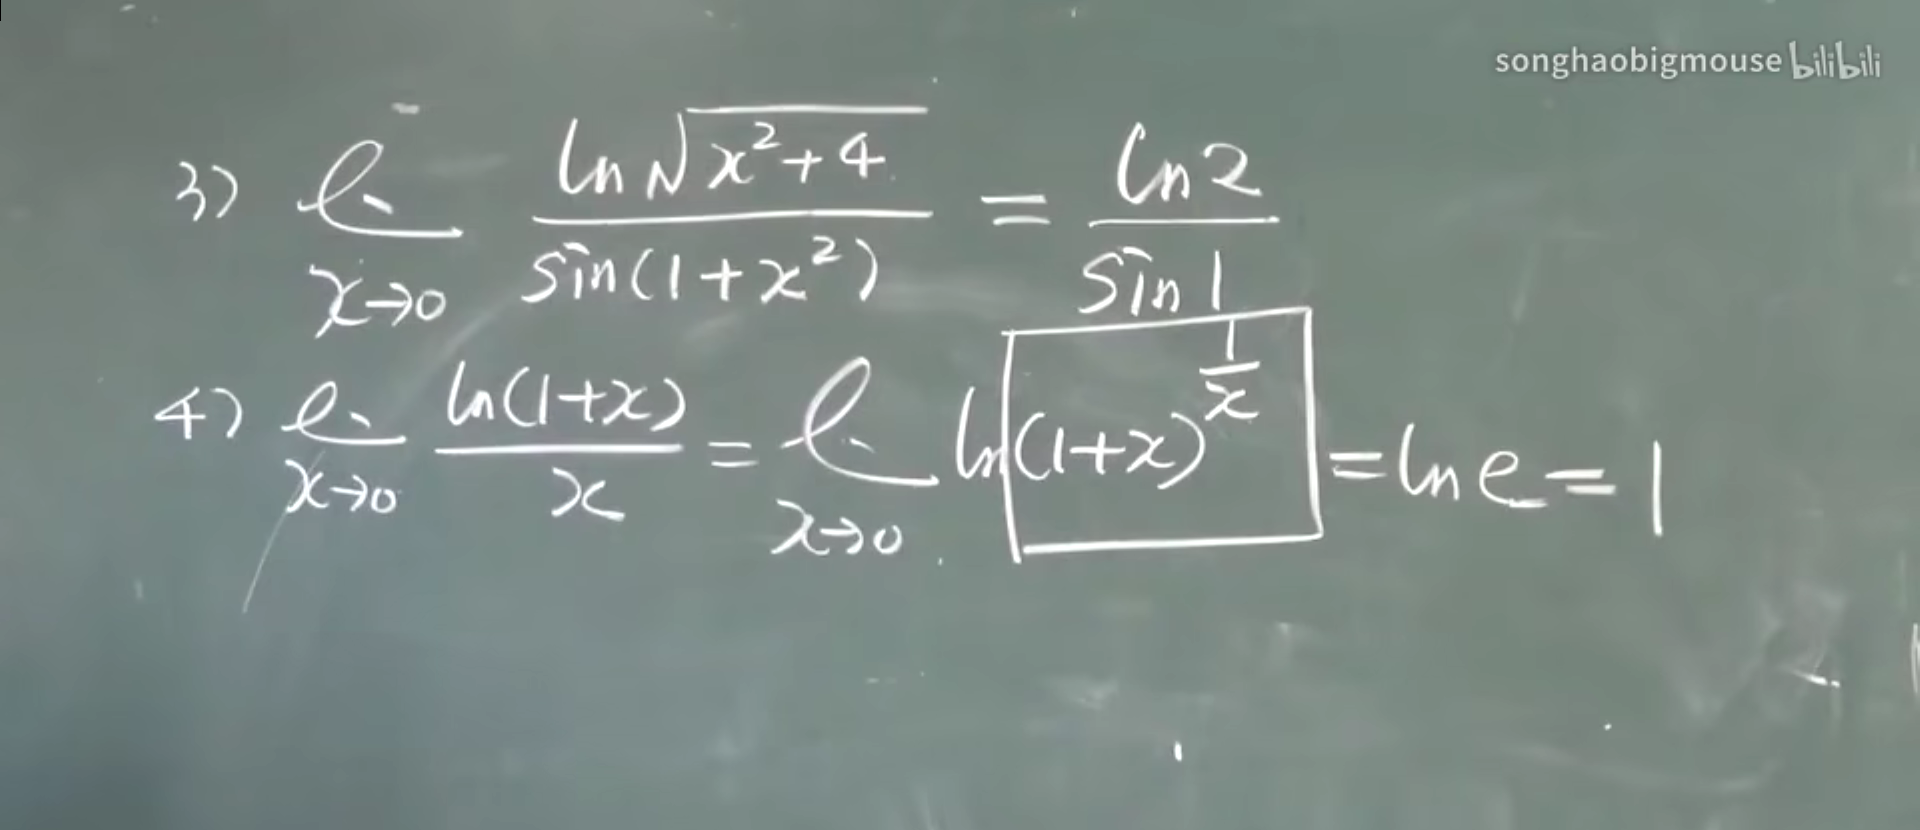 songhaobigmouse bilibili
3) lim x→0 ln√(x²+4) / sin(1+x²) = ln2 / sin1
4) lim x→0 ln(1+x) / x = lim x→0 ln(1+x)^(1/x) = ln e = 1